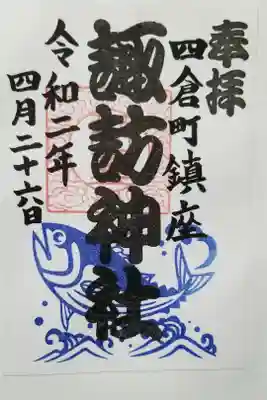 奉拝
四倉町鎮座
諏訪神社
令和二年
四月二十六日